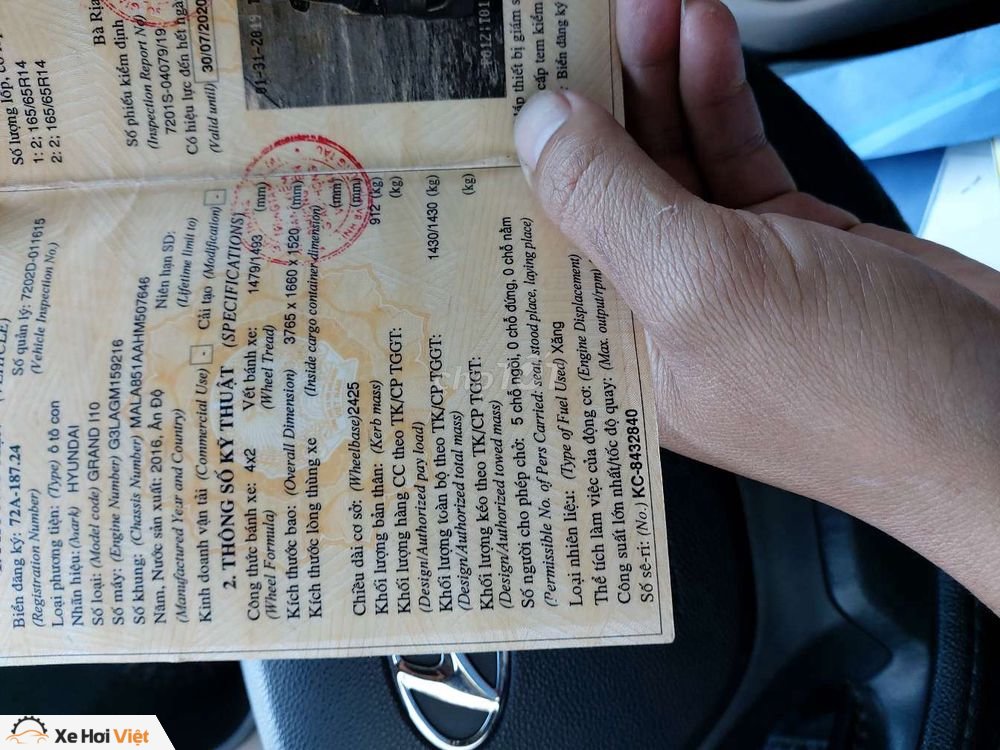 Biển đăng ký: 72A-187.24
Số quản lý: 7202D-011615
(Registration Number)
(Vehicle Inspection No.)
Loại phương tiện: (Type) ô tô con
Nhãn hiệu: (Mark) HYUNDAI
Số loại: (Model code) GRAND I10
Số máy: (Engine Number) G3LAGM159216
Số khung: (Chassis Number) MALA851AAHM507646
Năm, Nước sản xuất: 2016, Ấn Độ
Niên hạn SD:
(Manufactured Year and Country)
(Lifetime limit to)
Kinh doanh vận tải (Commercial Use) - Cải tạo (Modification) -
2. THÔNG SỐ KỸ THUẬT (SPECIFICATIONS)
Công thức bánh xe: 4x2 Vết bánh xe: 1479/1493 (mm)
(Wheel Formula) (Wheel Tread)
Kích thước bao: (Overall Dimension) 3765 x 1660 x 1520 (mm)
Kích thước lòng thùng xe (Inside cargo container dimension) (mm)
Chiều dài cơ sở: (Wheelbase) 2425 (mm)
Khối lượng bản thân: (Kerb mass) 912 (kg)
Khối lượng hàng CC theo TK/CP TGGT: (kg)
(Design/Authorized pay load)
Khối lượng toàn bộ theo TK/CP TGGT: 1430/1430 (kg)
(Design/Authorized total mass)
Khối lượng kéo theo TK/CP TGGT: (kg)
(Design/Authorized towed mass)
Số người cho phép chở: 5 chỗ ngồi, 0 chỗ đứng, 0 chỗ nằm
(Permissible No. of Pers Carried: seat, stood place, laying place)
Loại nhiên liệu: (Type of Fuel Used) Xăng
Thể tích làm việc của động cơ: (Engine Displacement)
Công suất lớn nhất/tốc độ quay: (Max. output/rpm)
Số sê-ri: (No.) KC-8432840
Số lượng lốp, cỡ
1: 2; 165/65R14
2: 2; 165/65R14
Bà Rịa
Số phiếu kiểm định
(Inspection Report No
7201S-04079/19
Có hiệu lực đến hết ngà
(Valid until) 30/07/2020
thiết bị giám s
cấp tem kiểm
Biển đăng ký
Chợ TỐT
Xe Hơi Việt